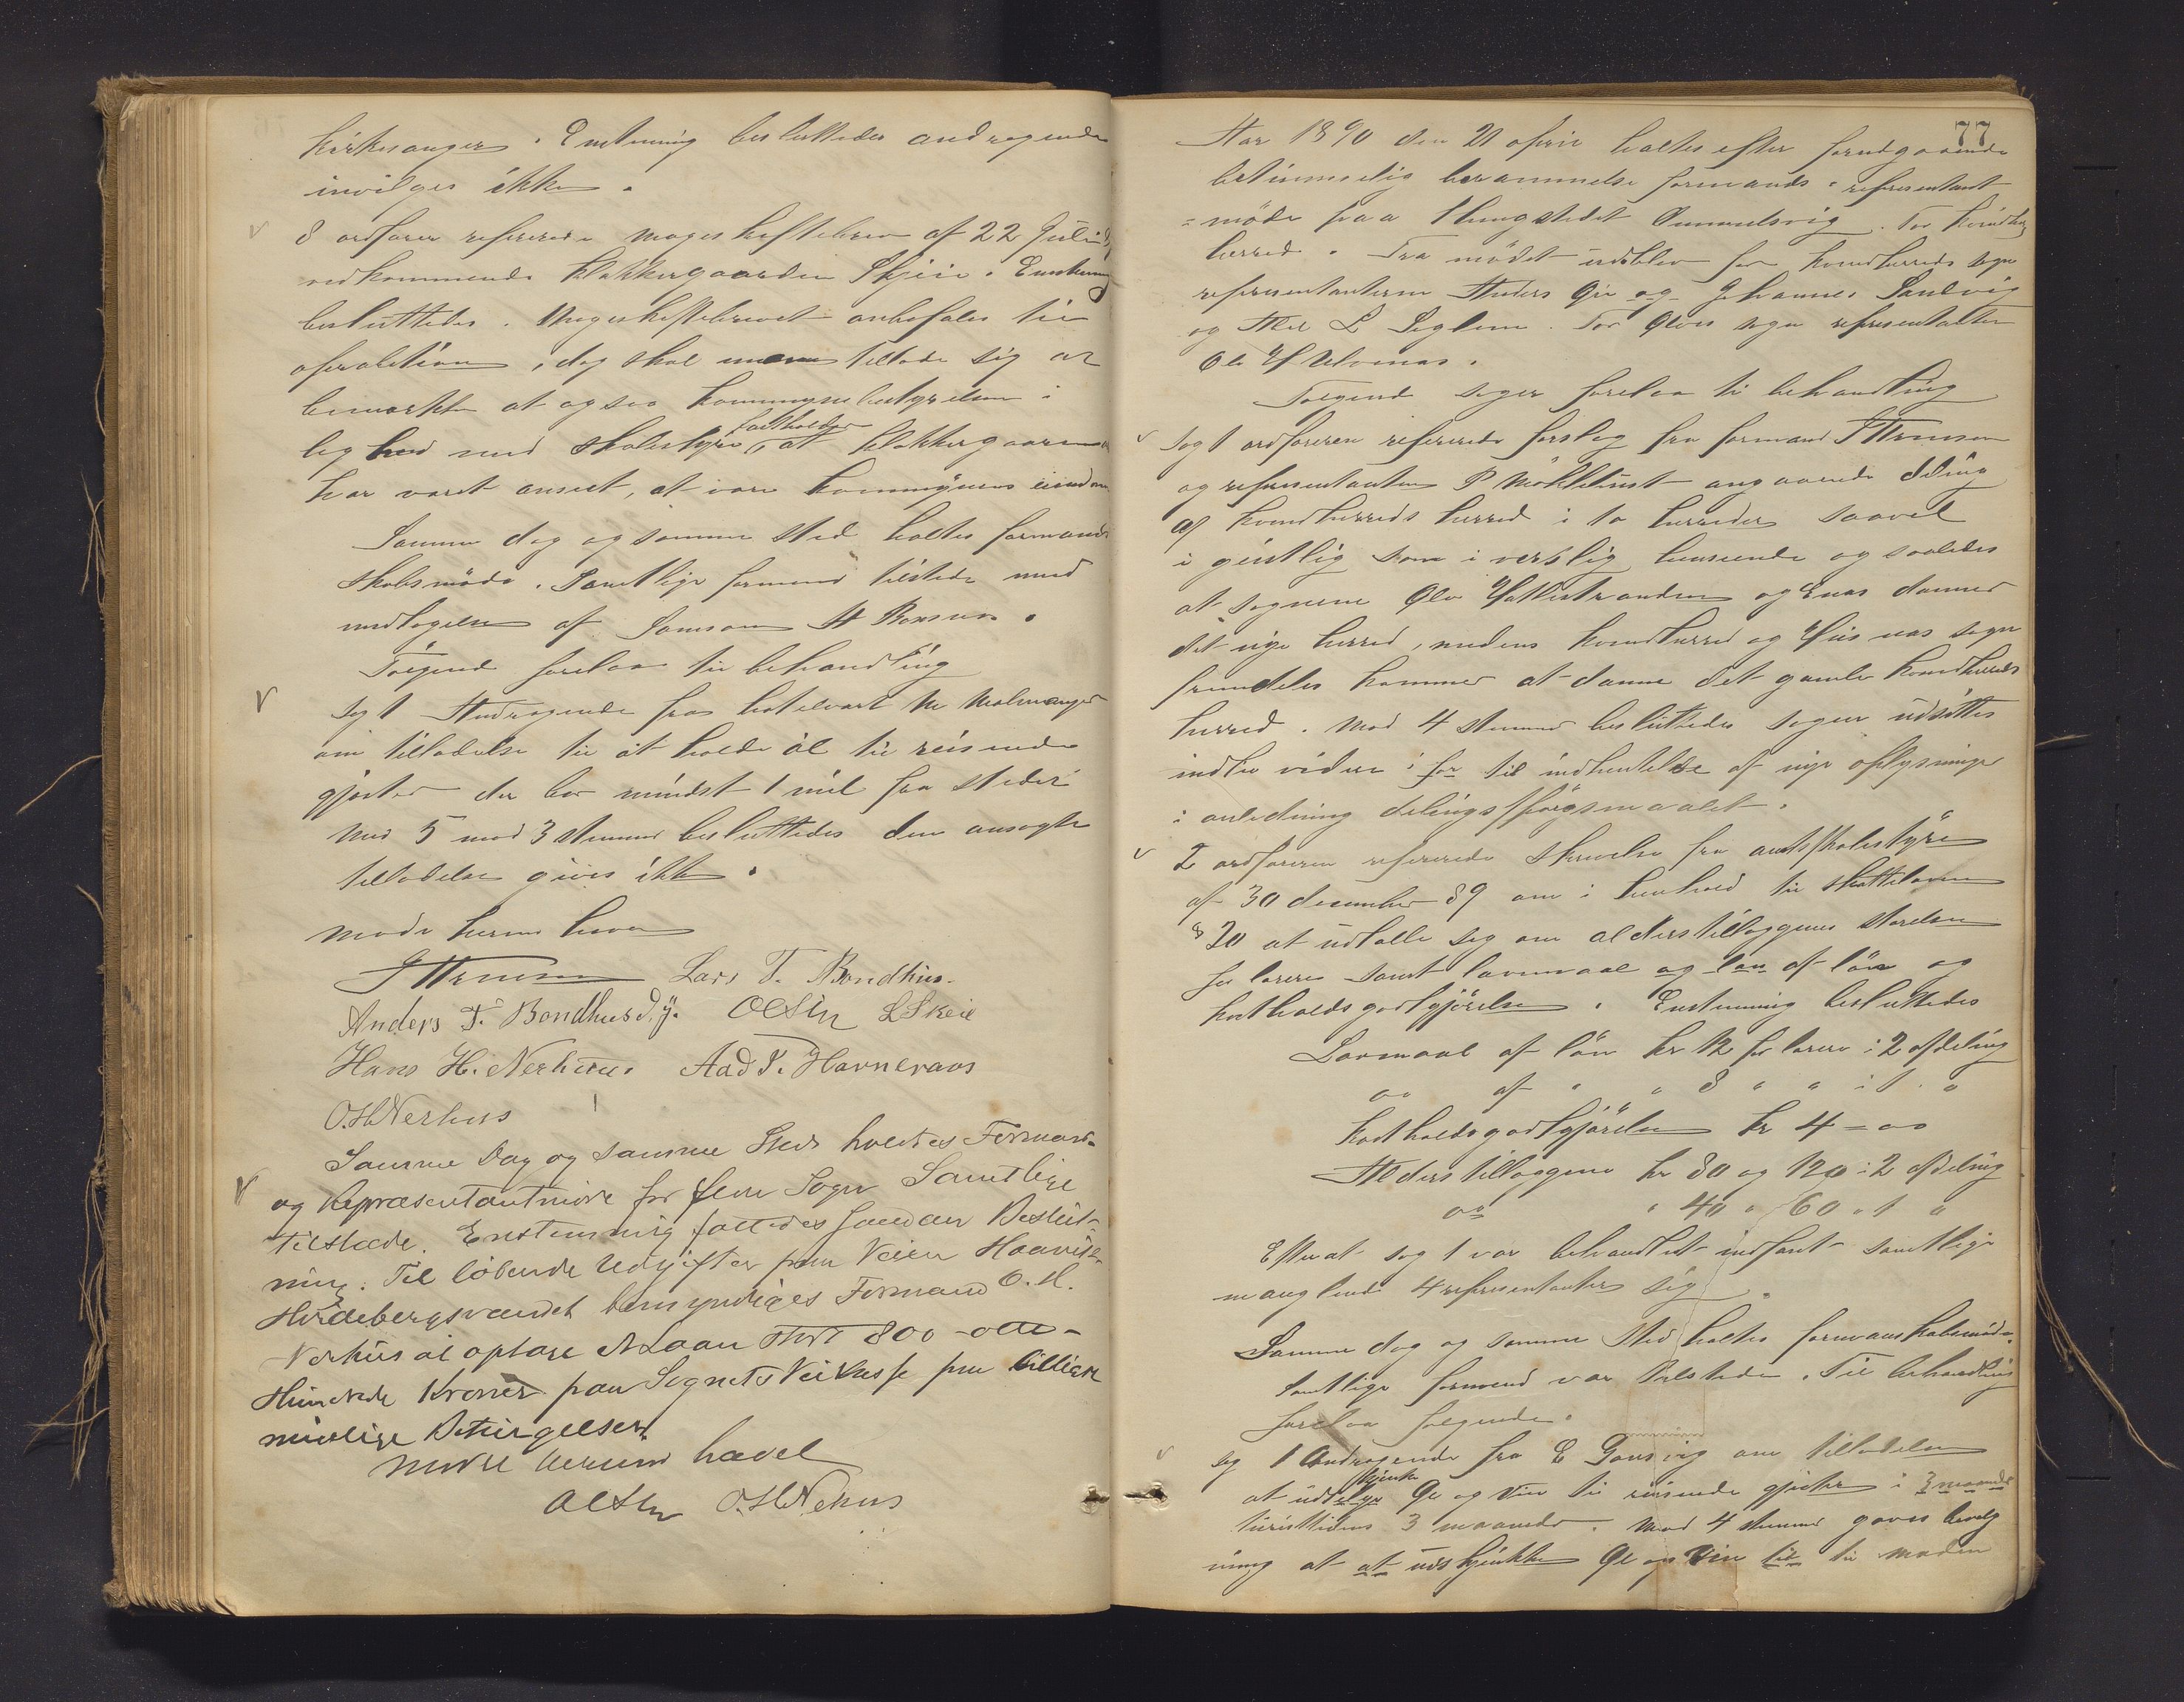 kirkesanger. Enstemmig besluttedes andragende
invilges ikke.
8 ordforer refererede mageskiftebrev af 22 Juli
vedkommende klokkergaarden Skjeie. Enstemmig
besluttedes. Mageskiftebrevet anbefales til
aprobation, dog skal man tillade sig at
bemærke at ogsaa kommunebestyrelsen i
lighed med skolestyre fastholder at klokkergaarden
har været anseet, at være kommunens eiendom
Samme dag og samme sted holtes formand
skabsmøde. Samtlige formend tilstede med
undtagelse af Samson H Rosseos.
Følgende forelaa til behandling
Sag 1 Andragende fra hotelvært M Malmanger
om tilladelse til at holde øl til reisende
gjester der bor mindst 1 mil fra stedet
med 5 mod 3 stemmer besluttedes den ansøgte
tilladelse gives ikke.
møde herme hevet
Lars T. Bondhus.
Anders T. Bondhus d.y. OHSln LSkeie
Hans H. Nerhuus. Aad T. Havneraas
O.H.Nerhus
Samme Dag og samme Sted holdtes Formand-
og Repræsentantmøde for Sogn Samtlige
tilstæde. Enstemmig fattedes saadan Beslut-
ning: Til løbende Udgifter paa Veien
Hordebergsvandet bemyndiges Formand O. H.
Nerhus at optage et Laan stort 800 - otte -
Hundrede Kroner paa Sognets Veikasse paa billigst
mulige Betingelser
Møde herme hævet
O.H.Nehus
77
Aar 1890 den 21 april holtes efter forudgaaende
betimmelig berammelse formands & representant
=møde paa thingstedet Ommelsvig. For Kvindher
herred. Fra mødet udeblev for Kvindherreds sogn
representanterne Anders Øie og Johannes Sandvig
og Axel L Seglem. For Ølves sogn representanten
Ole H Ulvenes.
Følgende sager forelaa til behandling
Sag 1 ordføreren refererede forslag fra formand
og representanten P Møkleburst angaaende deling
af Kvindherreds herred i to herreder saavel
i geistlig som i verslig henseende og saaledes
at sognene Ølve Hatlestranden og Enæs danner
det nye herred, medens Kvindherred og Husnæs sogn
fremdeles kommer at danne det gamle Kvindherreds
herred. Mod 4 stemmer besluttedes sagen udsættes
indtil videre i for til indhentelse af nye oplysninger
i anledning delingsspørgsmaalet.
2 ordføreren refererede skrivelse fra amtsskolestyre
af 30 december 89 om i henhold til skolelovens
§ 20 at udtalle sig om alderstillæggenes størelse
for lærere samt lavmaal og løn af løn og
kostholdsgodtgjørelse. Enstemmig besluttedes
Lavmaal af løn kr 12 for lærere i 2 afdeling
do af " " 8 " " i 1 "
kostholdsgodtgjørelse kr 4 = 00
Alderstillæggene kr 80 og 120 i 2 afdeling
do " 40 " 60 " 1 "
Efter at sag 1 var behandlet indfant samtlige
manglende 4 representanter sig.
Samme dag og samme sted holtes formanskabsmøde.
Samtlige formænd var tilstede. Til behandling
forelaa følgende.
Sag 1 Andragende fra E Gausvig om tilladelse
at udskjænke Øl og Vin til reisende gjester i 3 maaneder
turisttidens 3 maaneder. Mod 4 stemmer gaves bevilg
ning at at udskjænkke Øl og Vin til til maden